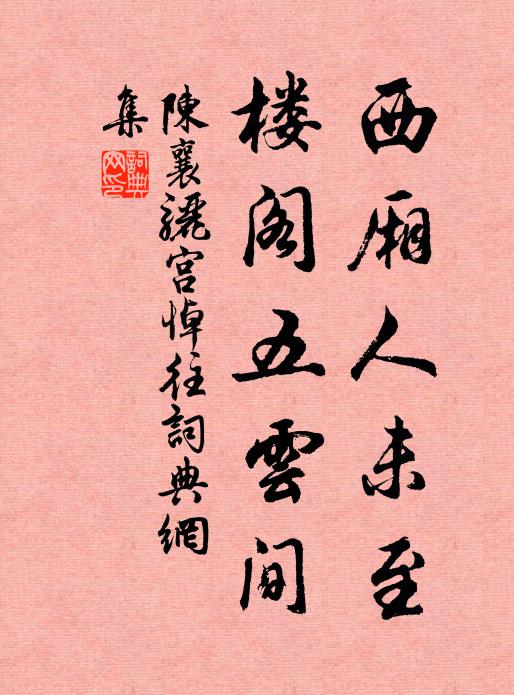 西厢人未至
楼阁五雲间
陳襄驪宫悼往詞典網
集
詞典网印